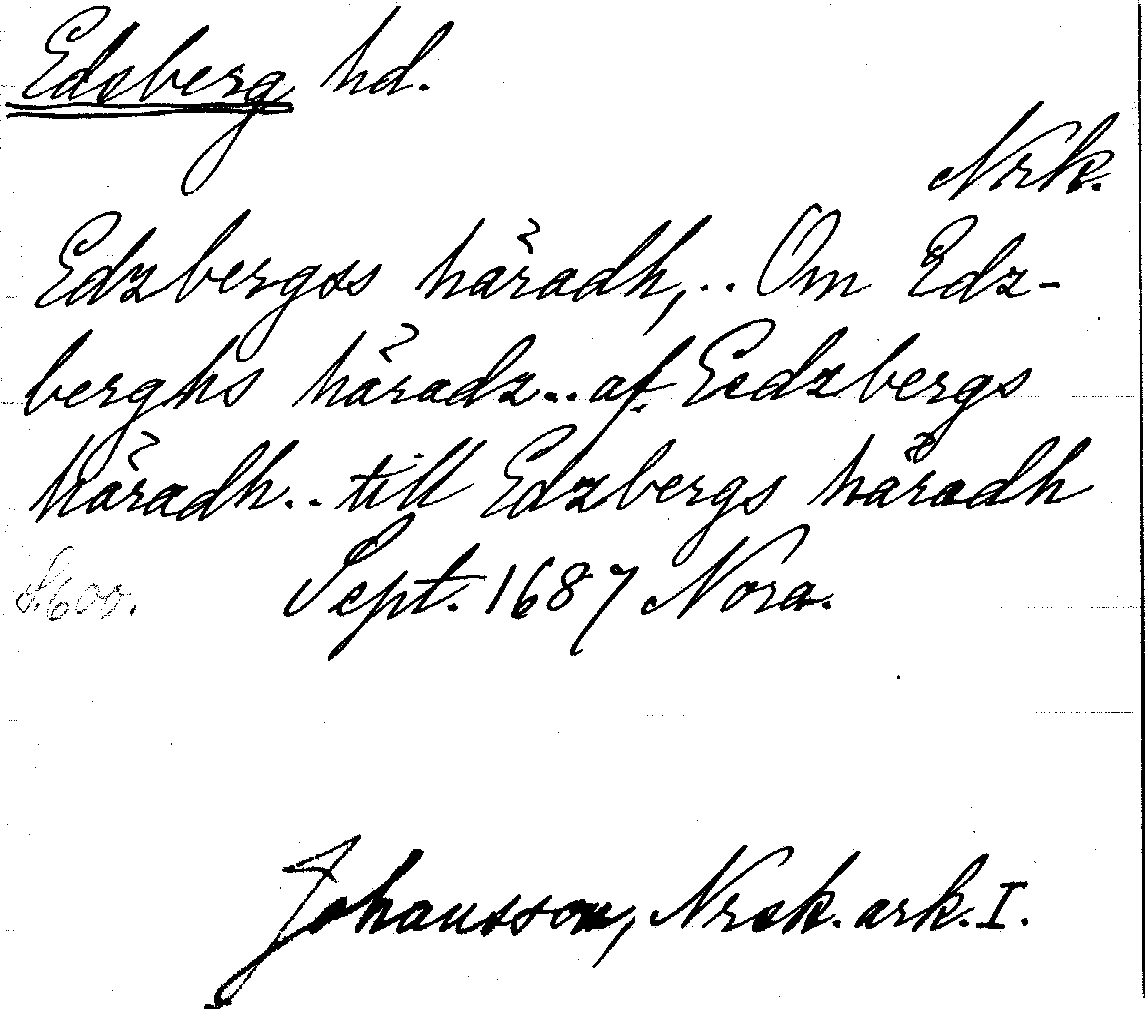 Edsberg hd.
Nrk.
Edzbergss häradh,.. Om Edz-
berghs häradz.. af Eedzbergs
häradh.. till Edzbergs häradh
S. 600. Sept. 1687 Nora.
Johansson, Nrsk. ark. I.